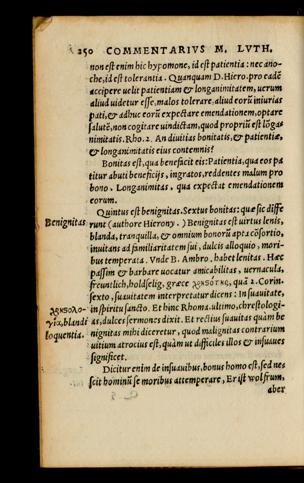 250 COMMENTARIVS M. LVTH.
non est enim hic hypomone, id est patientia: nec ano-
che, id est tolerantia. Quanquam D. Hiero. pro eadē
accipere uelit patientiam & longanimitatem, uerum
aliud uidetur esse, malos tolerare, aliud eorū iniurias
pati, & adhuc eorū expectare emendationem, optare
salutē, non cogitare uindictam, quod propriū est lōga
nimitatis. Rho. 2. An diuitias bonitatis, & patientiæ,
& longanimitatis eius contemnis?
Bonitas est, qua beneficit eis: Patientia, qua eos pa
titur abuti beneficijs, ingratos, reddentes malum pro
bono. Longanimitas, qua expectat emendationem
eorum.
Quintus est benignitas. Sextus bonitas: quæ sic diffe
Benignitas runt (authore Hierony.) Benignitas est uirtus lenis,
blanda, tranquilla, & omnium bonorū apta cōsortio,
inuitans ad familiaritatem sui, dulcis alloquio, mori-
bus temperata. Vnde B. Ambro. habet lenitas. Hæc
passim & barbare uocatur amicabilitas, uernacula,
freuntlich, holdselig, græce χρηςότης, quā 2. Corin.
sexto, suauitatem interpretatur dicens: In suauitate,
χρηςολο- in spiritu sancto. Et hinc Rhoma. ultimo, chrestologi-
γία, blandi as, dulces sermones dixit. Et rectius suauitas quàm be
loquentia. nignitas mihi diceretur, quod malignitas contrarium
uitium atrocius est, quàm ut difficiles illos & insuaues
significet.
Dicitur enim de insuauibus, bonus homo est, sed nes
scit hominū se moribus attemperare, Er ist wol frum,
aber